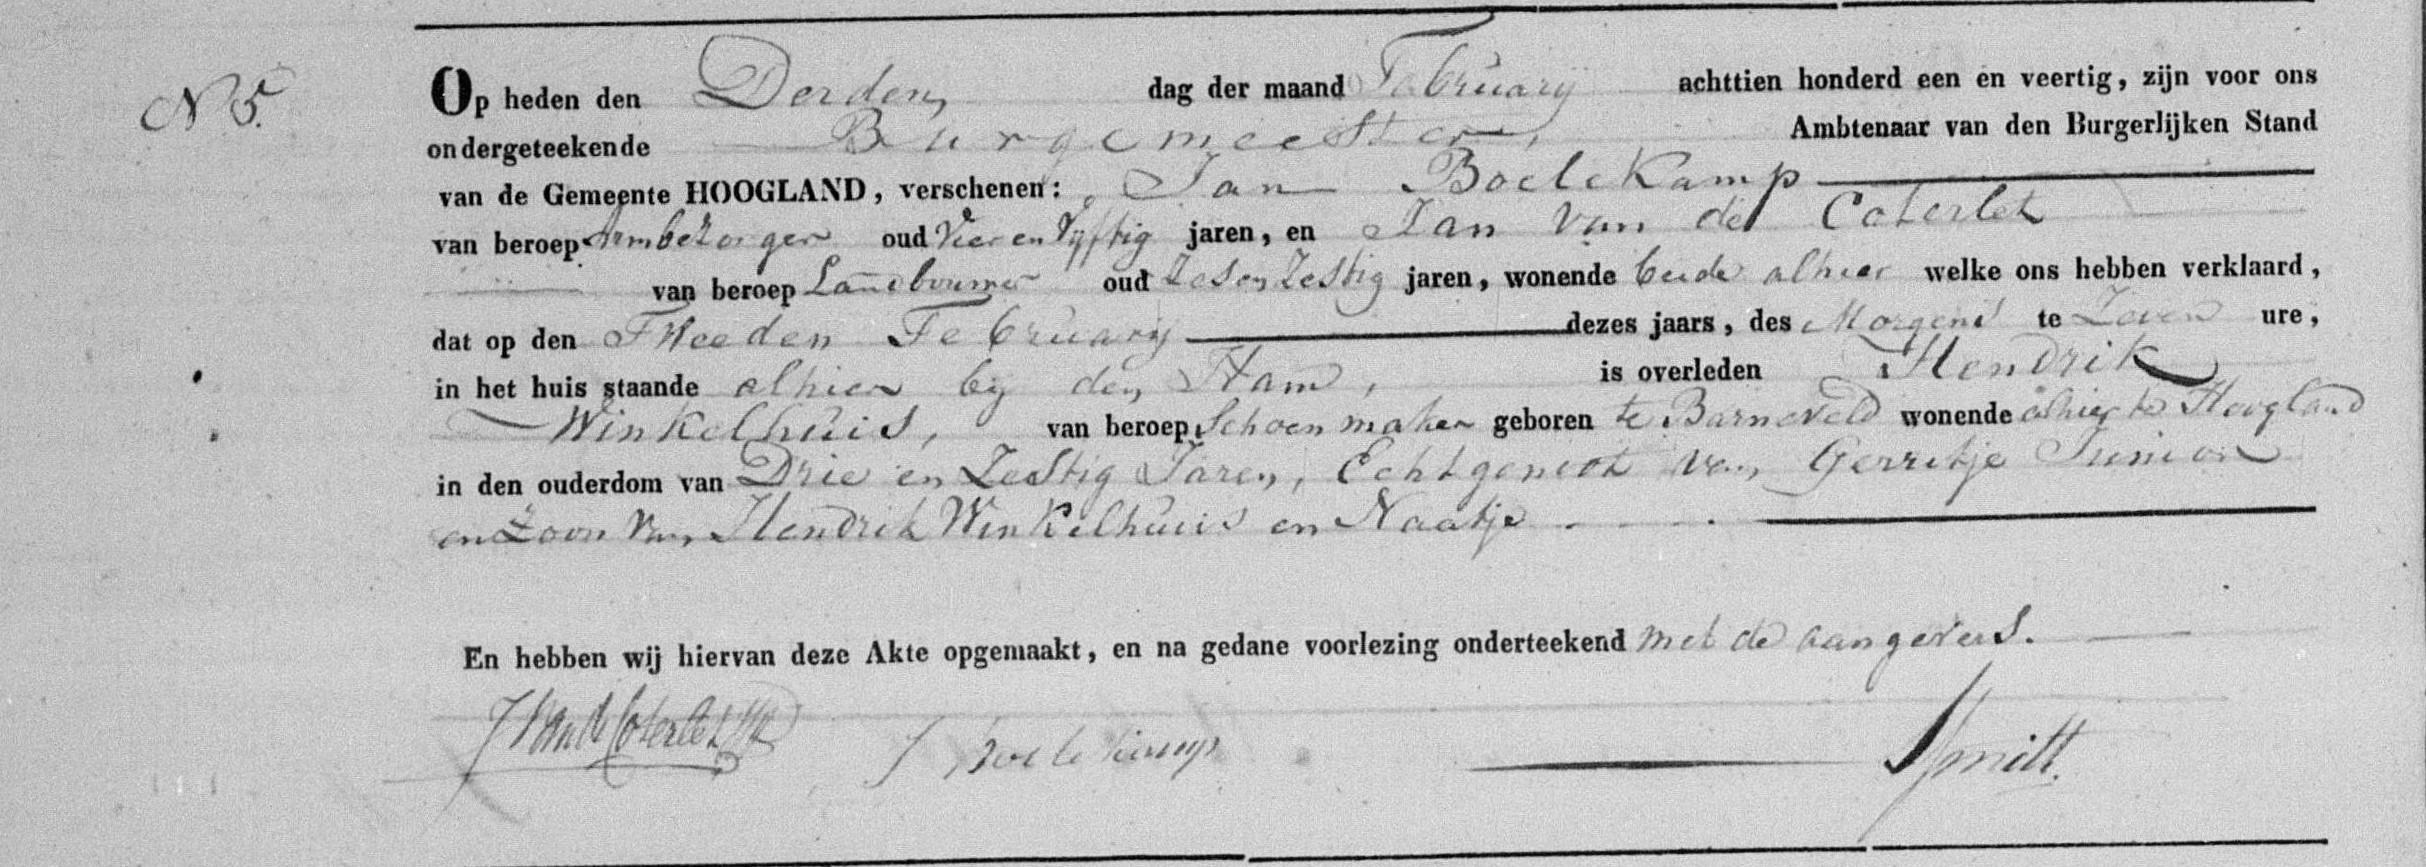 N 5.
Op heden den Derden dag der maand February achttien honderd een en veertig, zijn voor ons
ondergeteekende Burgemeester, Ambtenaar van den Burgerlijken Stand
van de Gemeente HOOGLAND, verschenen: Jan Boelekamp
van beroep Armbezorger oud Vier en Vyftig jaren, en Jan van de Coterlet
van beroep Landbouwer oud Zes en Zestig jaren, wonende beide alhier welke ons hebben verklaard,
dat op den Tweeden February dezes jaars, des Morgens te Zeven ure,
in het huis staande alhier by den Ham, is overleden Hendrik
Winkelhuis, van beroep Schoenmaker geboren te Barneveld wonende alhier te Hoogland
in den ouderdom van Drie en Zestig Jaren, Echtgenoot van Gerritje Junior
en Zoon van Hendrik Winkelhuis en Naatje
En hebben wij hiervan deze Akte opgemaakt, en na gedane voorlezing onderteekend met de aangevers.
J Van de Coterlet J Boelekamp Smitt.